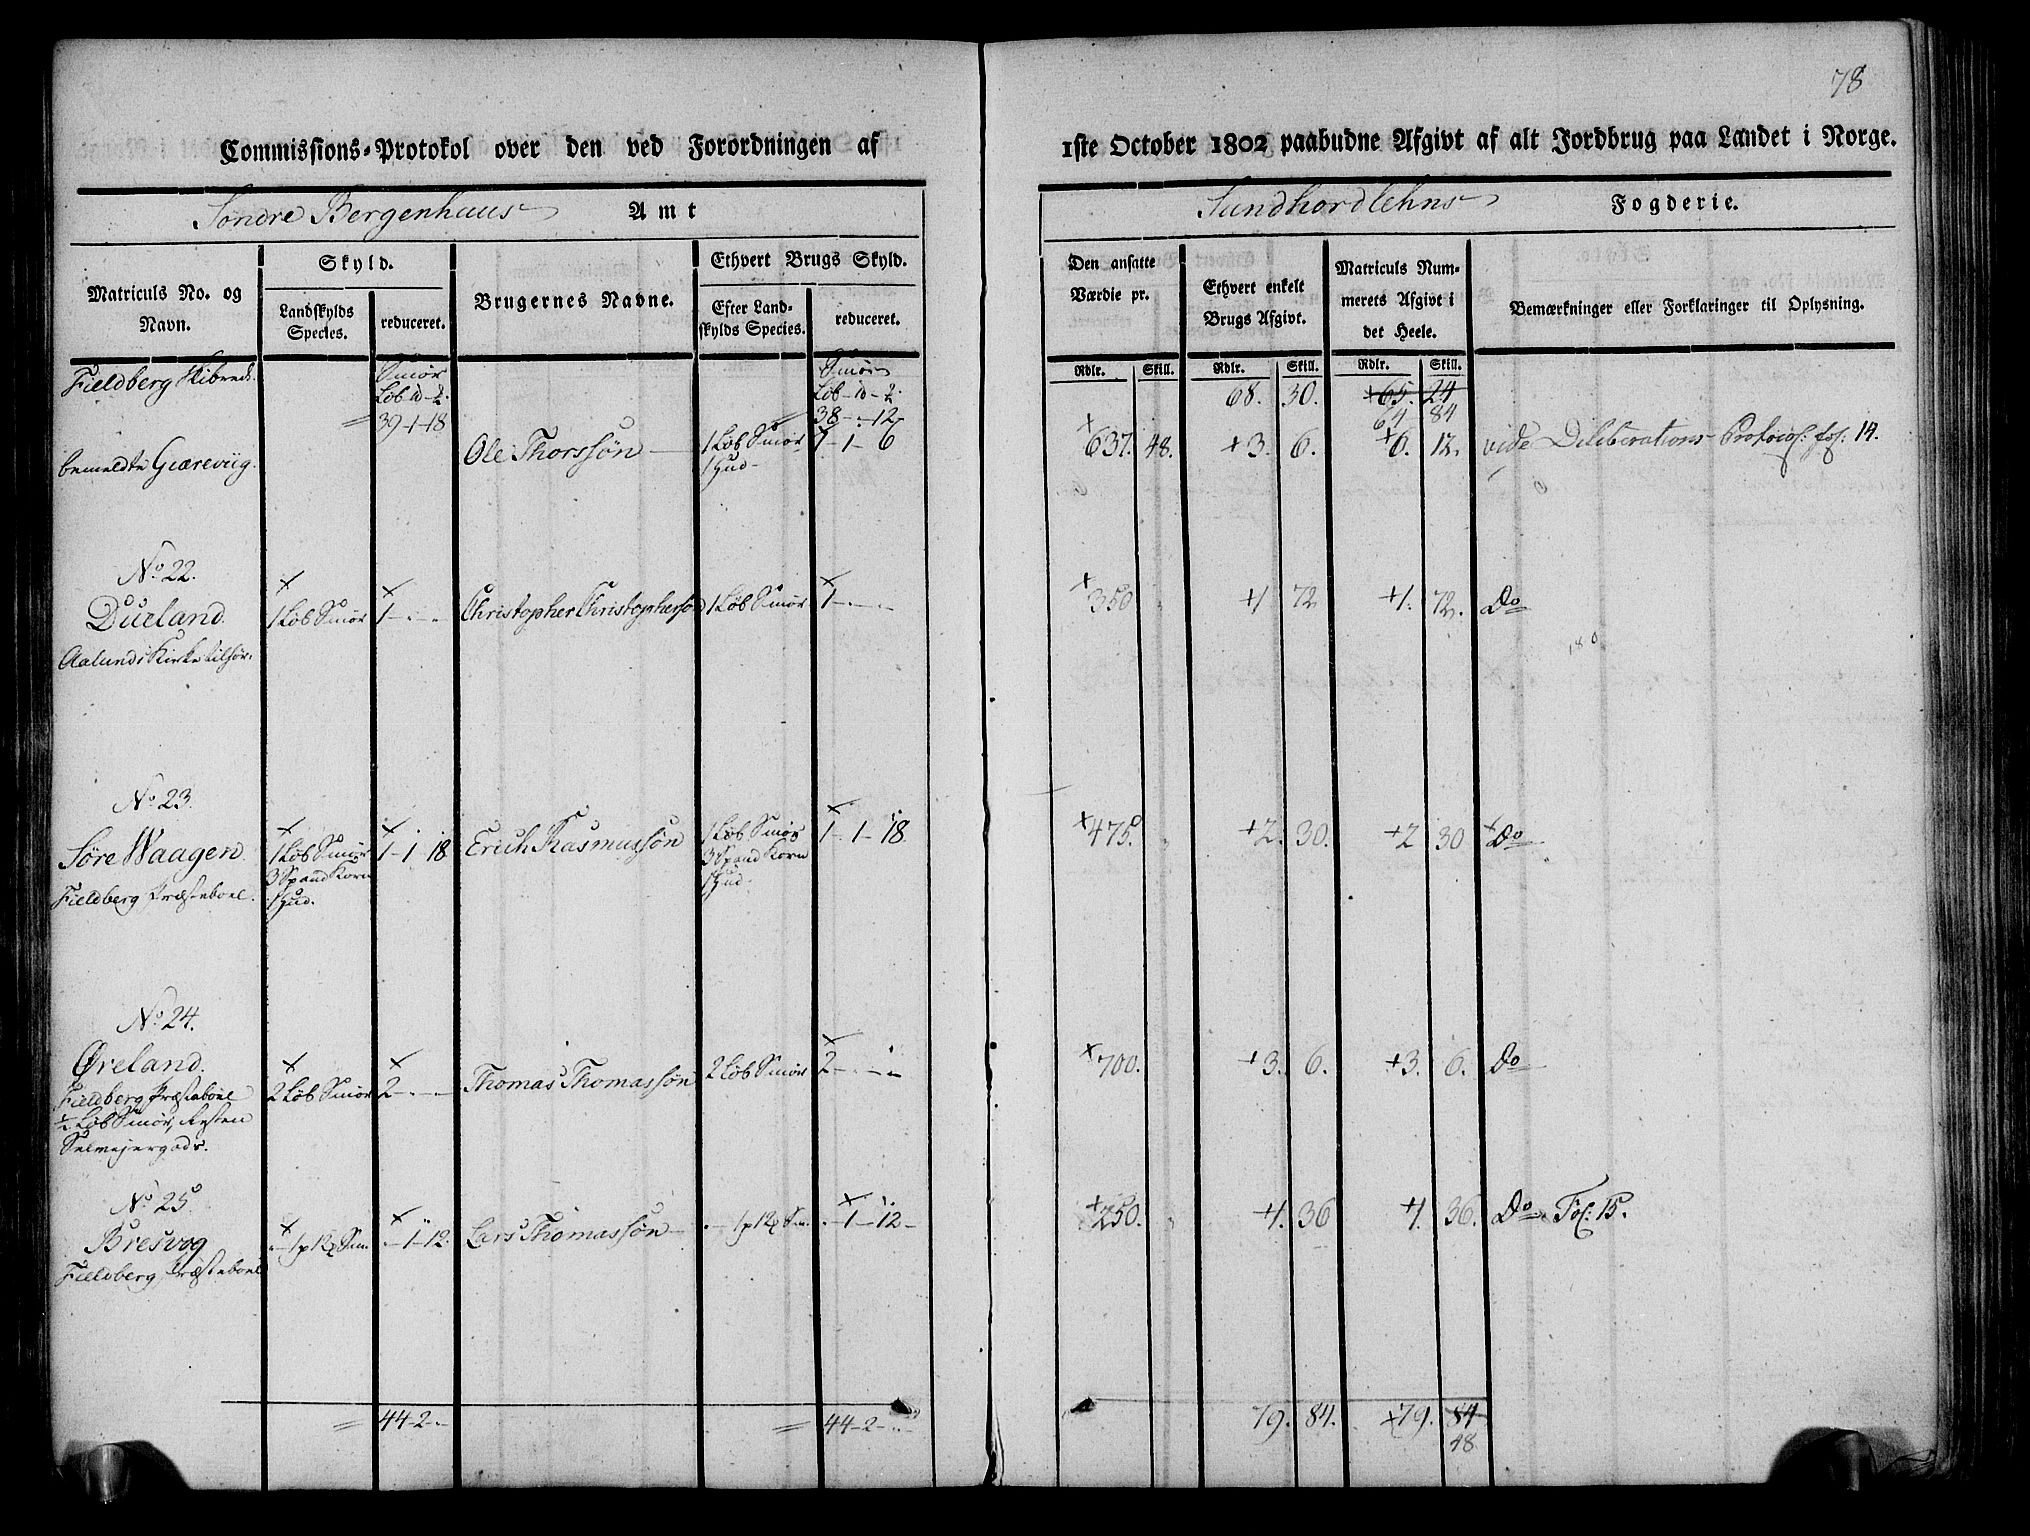 78
Commissions-Protokol over den ved Forordningen af
1ste October 1802 paabudne Afgivt af alt Jordbrug paa Landet i Norge.
Søndre Bergenhuus Amt
Sundhordlehns Fogderie.
Matriculs No. og Navn.
Skyld.
Landskylds Species.
reduceret.
Brugernes Navne.
Ethvert Brugs Skyld.
Efter Landskylds Species.
reduceret.
Den ansatte Værdie pr.
Ethvert enkelt Brugs Afgivt.
Matriculs Nummerets Afgivt i det Heele.
Bemærkninger eller Forklaringer til Oplysning.
Rdlr. Skill. Rdlr. Skill. Rdlr. Skill.
Fieldberg Skibrede. Smør Smør
Løb - Løb -
68. 30. +65. 24
= 39-1-18 = 38-..-12- 64 84
bemeldte Giærevig. Ole Thorssøn 1 Løb Smør 7-1-6 +637. 48. +3. 6. +6. 12. vide Deliberations Protocol: fol: 14.
1 Hud-
No. 22.
Dueland. 1 Løb Smør 1-..-.. Christopher Christophersøn 1 Løb Smør 1-..-.. +350 " +1 72 +1. 72. Do
Aalunds Kirke tilhør:
No. 23.
Søre Waagen. 1 Løb Smør 1-1-18 Erich Rasmussøn 1 Løb Smør 1-1-18. +475. " +2. 30. +2 30 Do
3 Spand Korn 3 Spand Korn
Fieldberg Præsteboel. 1 Hud. 1 Hud.
No. 24.
Øreland. 2 Løb Smør 2-..-.. Thomas Thomassøn 2 Løb Smør 2-..-.. +700. +3. 6. +3. 6. Do
Fieldberg Præsteboel
½ Løb Smør, Resten
Selmejergods.
No. 25
Bresvog ..-1-12. Lars Thomassøn ..-1-12- +250. " +1. 36 +1. 36. Do Fol: 15.
Fieldberg Præsteboel
= 44-2-.. = 44-2-.. 79. 84. +79. 84
48